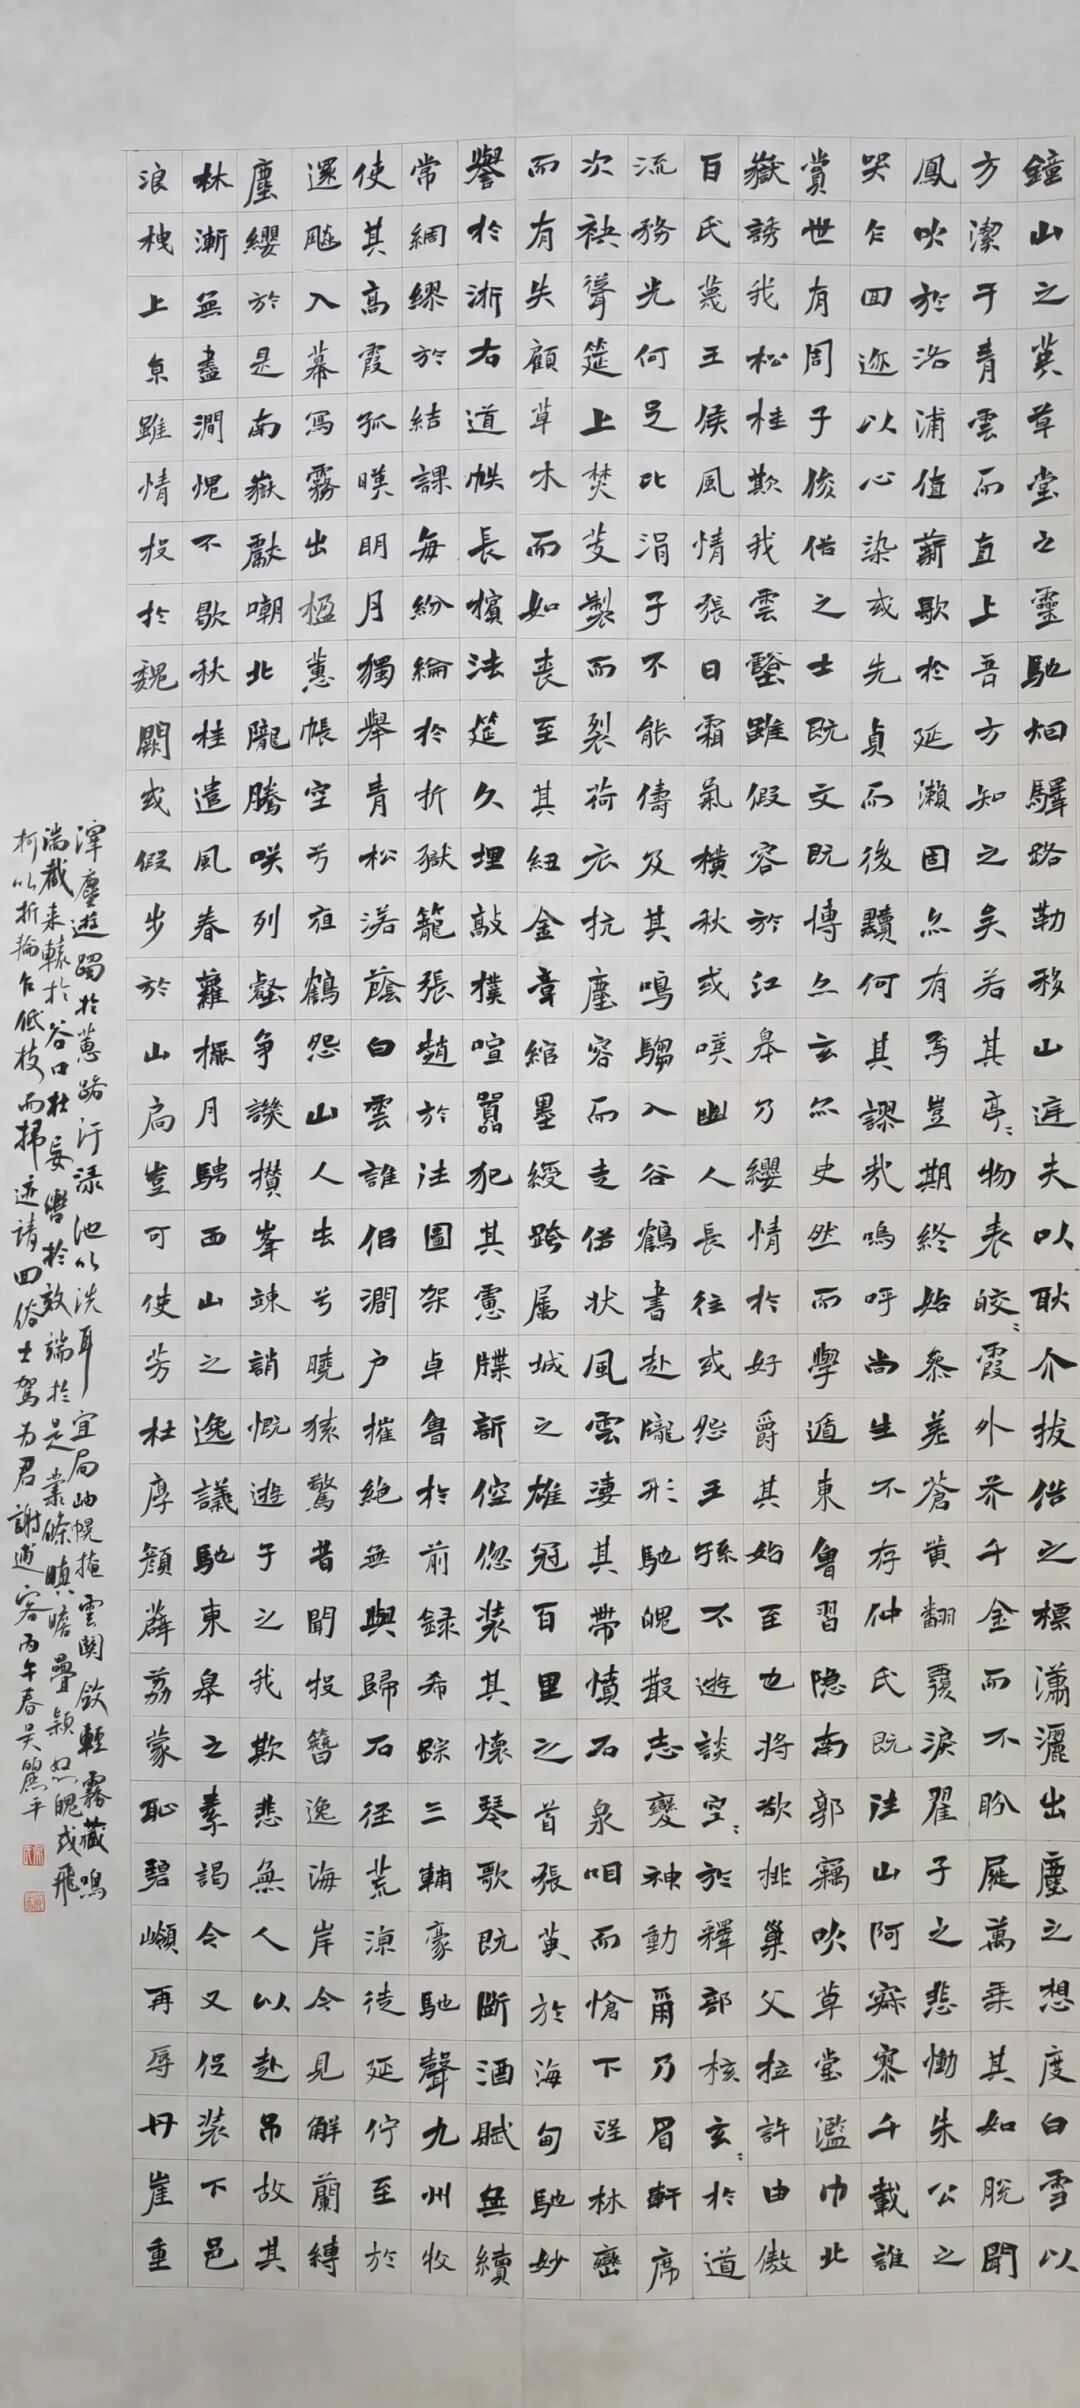 鐘山之英草堂之靈馳烟驛路勒移山庭夫以耿介拔俗之標瀟灑出塵之想度白雪以
方潔干青雲而直上吾方知之矣若其亭〻物表皎〻霞外芥千金而不盼屣萬乘其如脫聞
鳳吹於洛浦值薪歌於延瀨固亦有焉豈期終始參差蒼黃翻覆淚翟子之悲慟朱公之
哭乍回迹以心染或先貞而後黷何其謬哉嗚呼尚生不存仲氏既往山阿寂寥千載誰
賞世有周子俊俗之士既文既博亦玄亦史然而學遁東魯習隱南郭竊吹草堂濫巾北
嶽誘我松桂欺我雲壑雖假容於江皋乃纓情於好爵其始至也將欲排巢父拉許由傲
百氏蔑王侯風情張日霜氣橫秋或嘆幽人長往或怨王孫不遊談空〻於釋部核玄〻於道
流務光何足比涓子不能儔及其鳴騶入谷鶴書赴隴形馳魄散志變神動爾乃眉軒席
次袂聳筵上焚芰製而裂荷衣抗塵容而走俗狀風雲凄其帶憤石泉咽而愴下望林巒
而有失顧草木而如喪至其紐金章綰墨綬跨屬城之雄冠百里之首張英於海甸馳妙
譽於浙右道帙長擯法筵久埋敲撲喧囂犯其慮牒訴倥傯裝其懷琴歌既斷酒賦無續
常綢繆於結課每紛綸於折獄籠張趙於往圖架卓魯於前錄希踪三輔豪馳聲九州牧
使其高霞孤映明月獨舉青松落蔭白雲誰侶澗戶摧絕無與歸石徑荒涼徒延佇至於
還飆入幕寫霧出楹蕙帳空兮夜鶴怨山人去兮曉猿驚昔聞投簪逸海岸今見解蘭縛
塵纓於是南嶽獻嘲北隴騰笑列壑爭譏攢峯竦誚慨遊子之我欺悲無人以赴吊故其
林漸無盡澗愧不歇秋桂遣風春蘿擺月騁西山之逸議馳東皋之素謁今又促裝下邑
浪栧上京雖情投於魏闕或假步於山扃豈可使芳杜厚顏薜荔蒙恥碧嶺再辱丹崖重
滓塵遊躅於蕙路汙淥池以洗耳宜扃岫幌掩雲關斂輕霧藏鳴
湍截來轅於谷口杜妄轡於郊端於是叢條瞋膽疊穎怒魄或飛
柯以折輪乍低枝而掃迹請回俗士駕為君謝逋客丙午春吳平